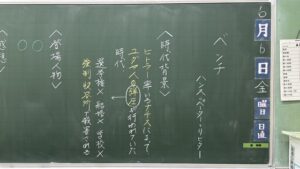 6月6日金曜日
日直
ベンチ
ハンス・ペーター・リヒター
〈時代背景〉
ヒトラー率いるナチスによって
ユダヤ人弾圧が行われていた
時代
選挙権× 結婚× 学校×
強制収容所で殺害される
〈登場人物〉